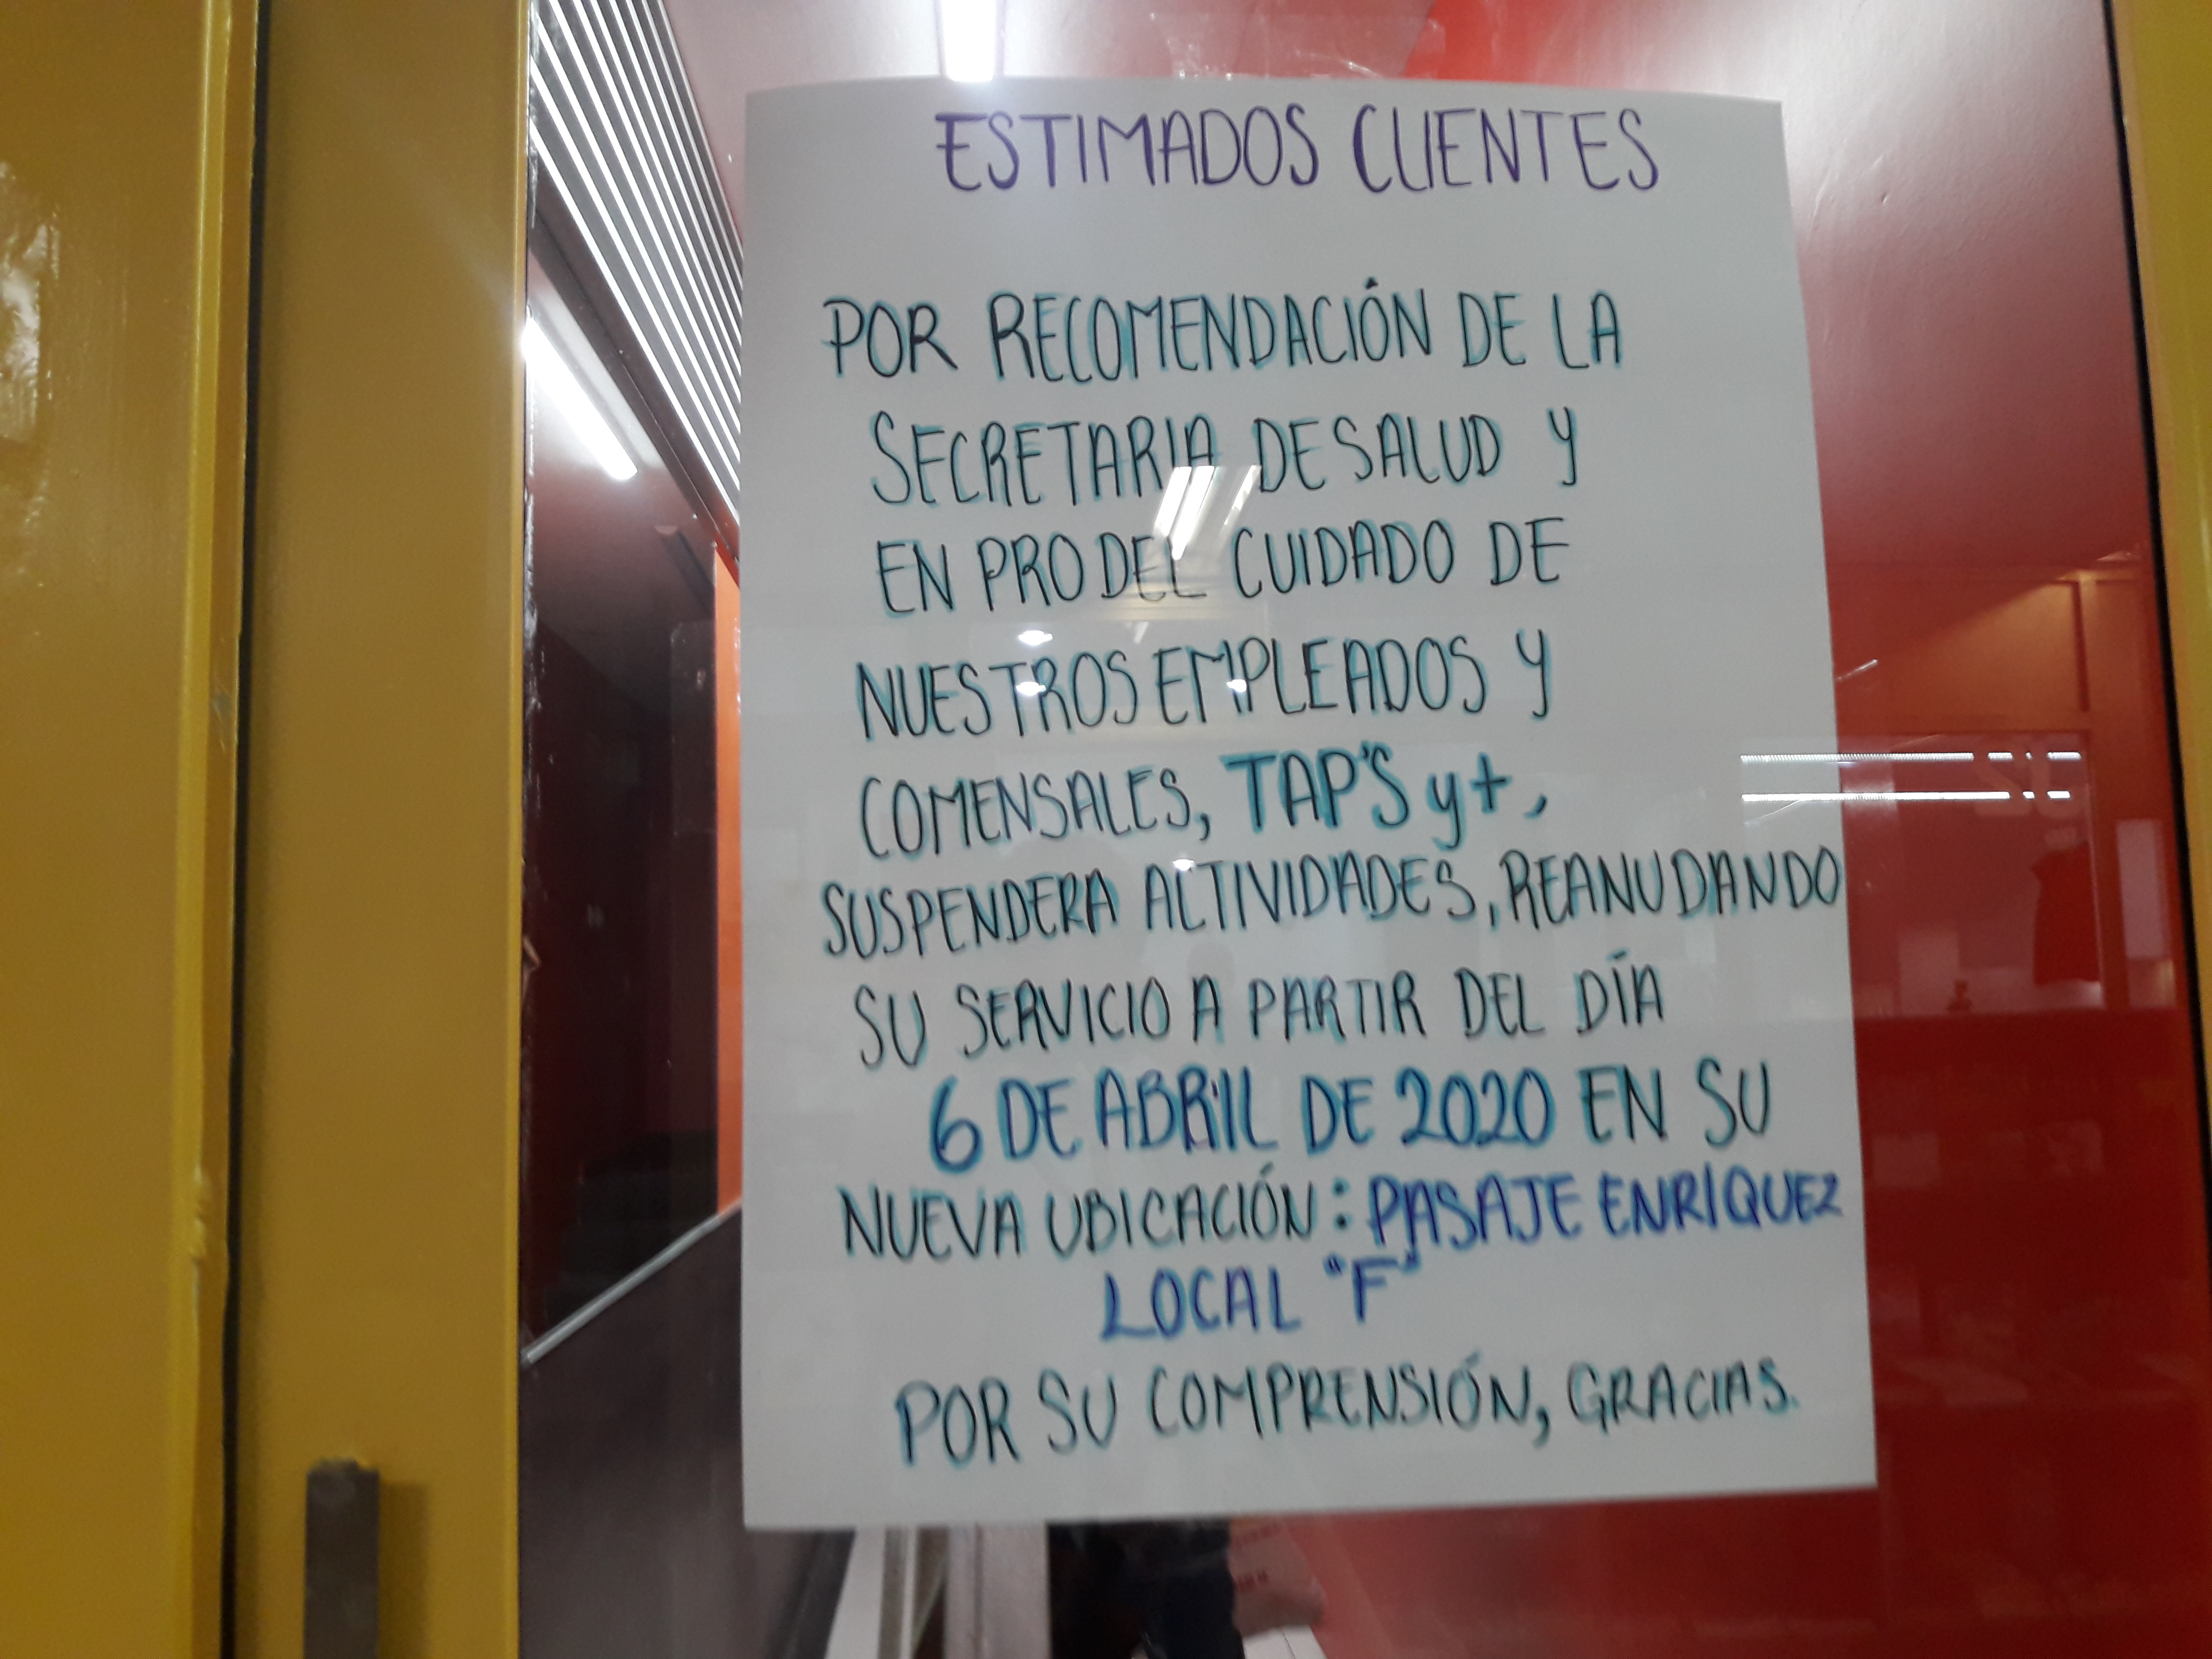 ESTIMADOS CLIENTES
POR RECOMENDACIÓN DE LA
SECRETARIA DE SALUD Y
EN PRO DEL CUIDADO DE
NUESTROS EMPLEADOS Y
COMENSALES, TAP'S y+,
SUSPENDERA ACTIVIDADES, REANUDANDO
SU SERVICIO A PARTIR DEL DÍA
6 DE ABRIL DE 2020 EN SU
NUEVA UBICACIÓN: PASAJE ENRÍQUEZ
LOCAL "F"
POR SU COMPRENSIÓN, GRACIAS.